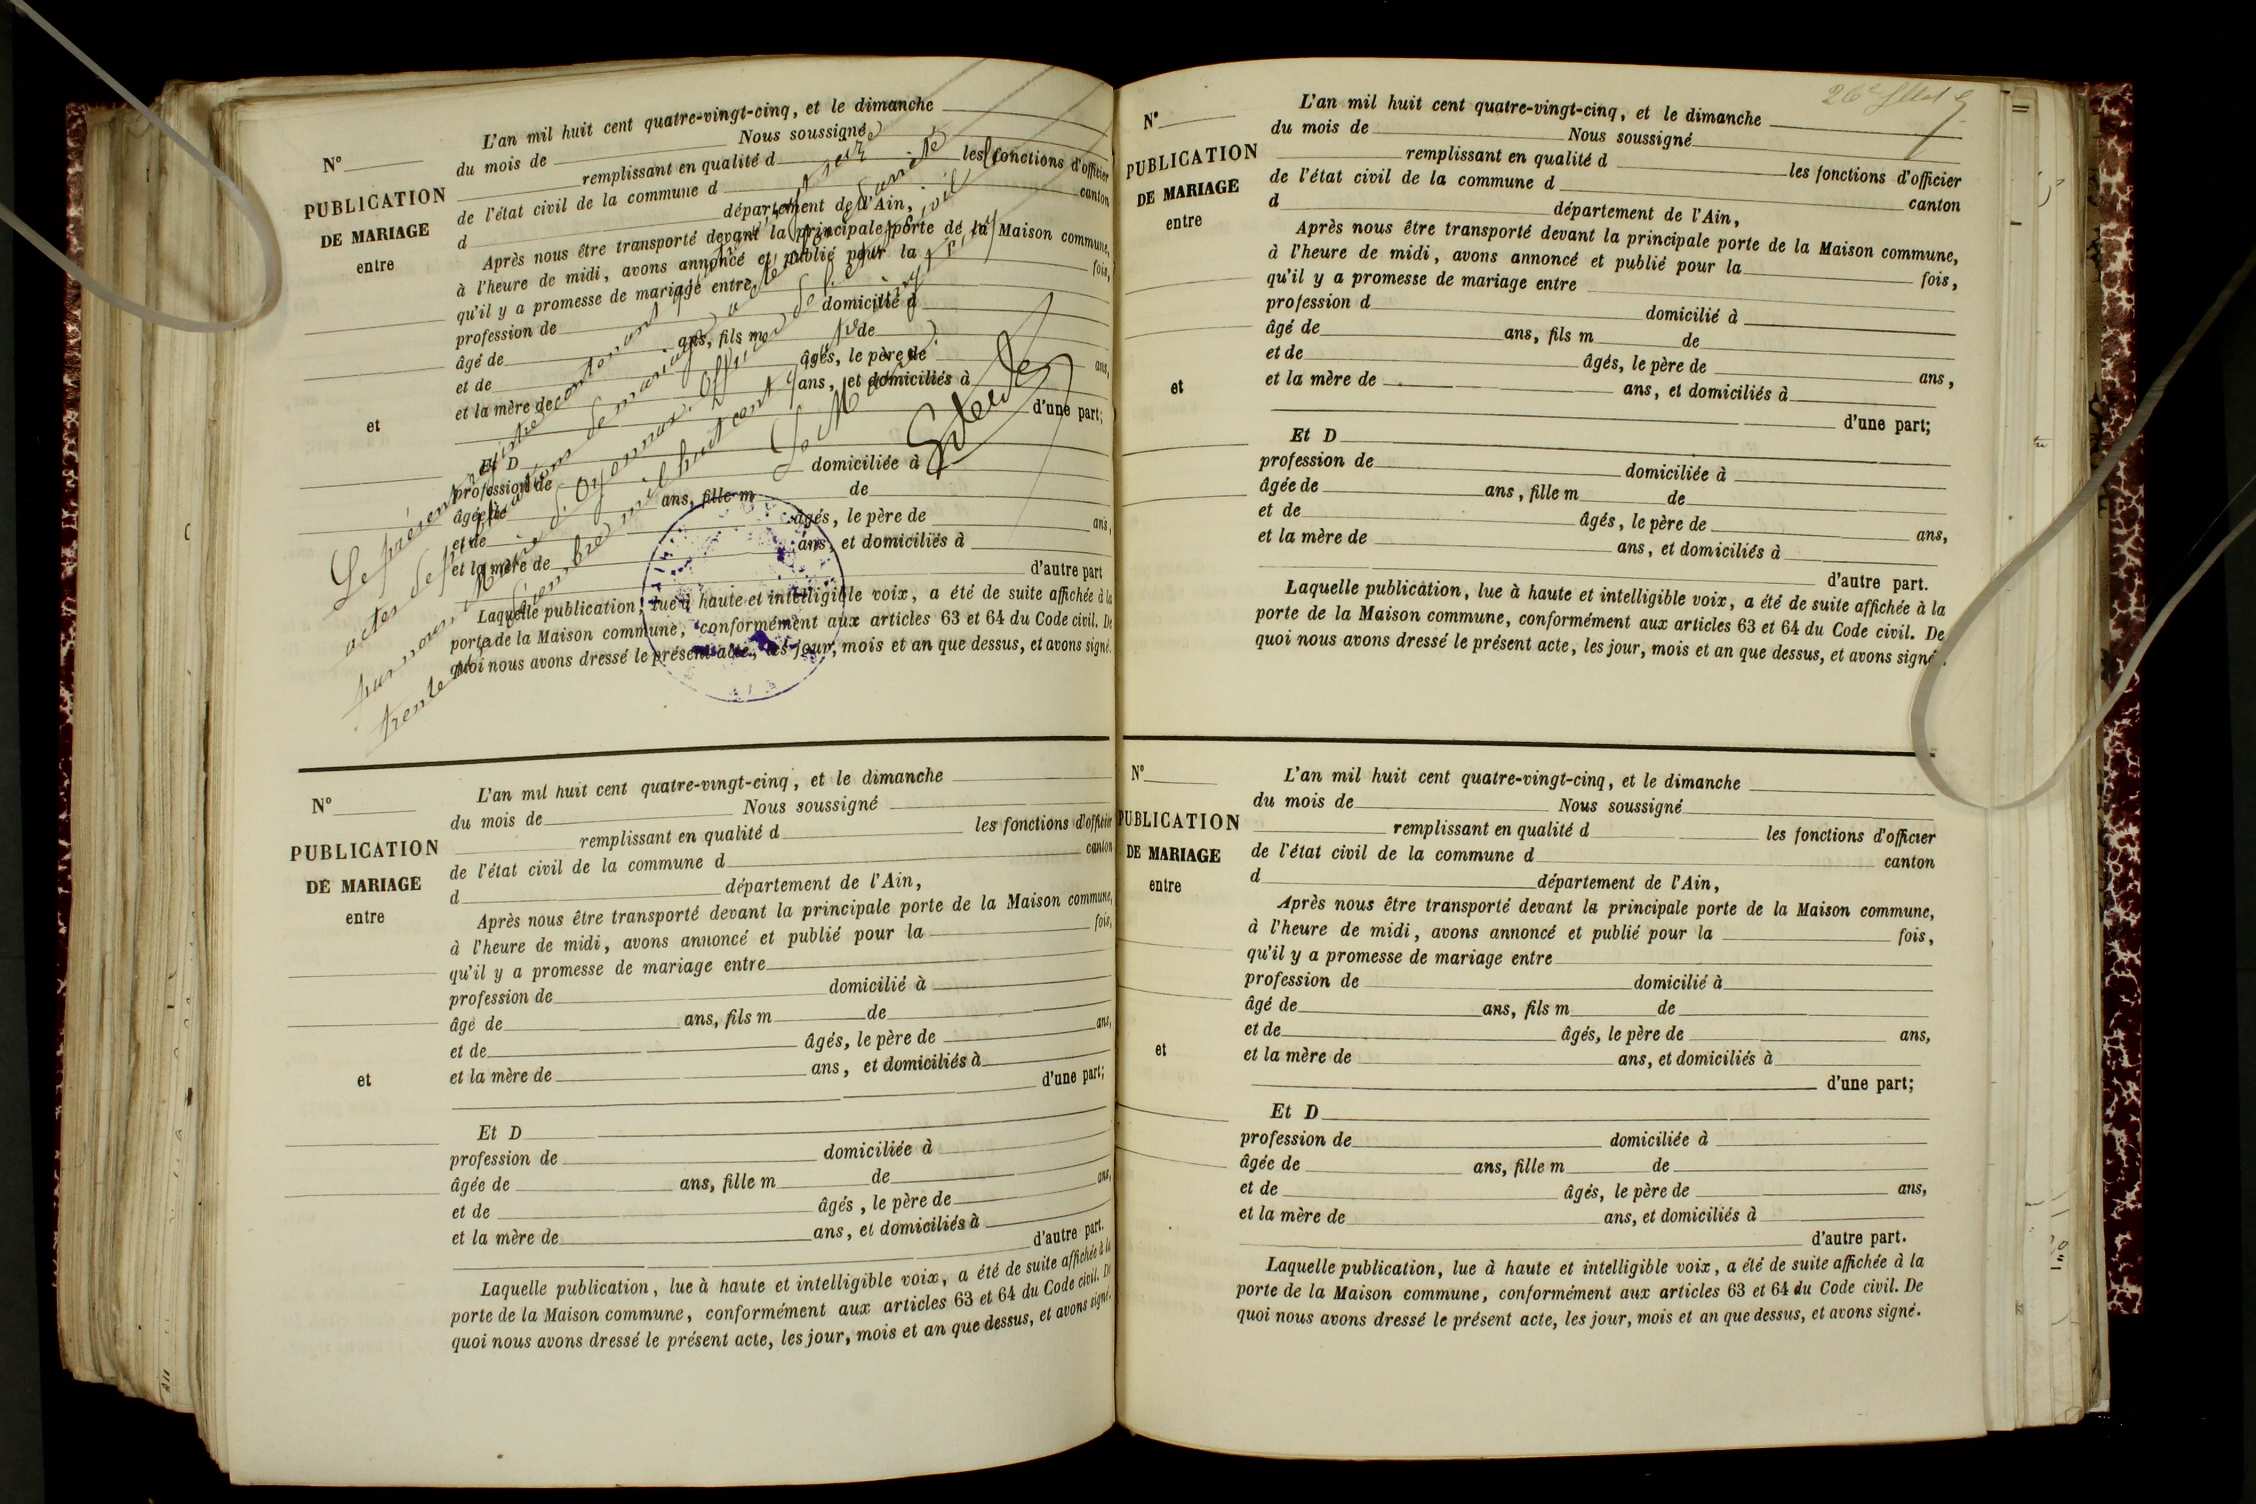 N°
PUBLICATION
DE MARIAGE
entre
et
L'an mil huit cent quatre-vingt-cinq, et le dimanche
du mois de Nous soussigné
remplissant en qualité d les fonctions d'officier
de l'état civil de la commune d canton
d département de l'Ain,
Après nous être transporté devant la principale porte de la Maison commune,
à l'heure de midi, avons annoncé et publié pour la fois,
qu'il y a promesse de mariage entre
profession de domicilié d
âgé de ans, fils m de
et de âgés, le père de ans,
et la mère de ans, et domiciliés à
d'une part;
Et D
profession de domiciliée à
âgée de ans, fille m de
et de âgés, le père de ans,
et la mère de ans, et domiciliés à
d'autre part
Laquelle publication, lue à haute et intelligible voix, a été de suite affichée à la
porte de la Maison commune, conformément aux articles 63 et 64 du Code civil. De
quoi nous avons dressé le présent acte, les jour, mois et an que dessus, et avons signé.
Le présent registre contenant
actes de publications de mariage a été clos et arrêté
par nous, Maire d'Oyonnax, officier de l'état civil
trente et un décembre mil huit cent quatre
Le Maire
N°
PUBLICATION
DE MARIAGE
entre
et
L'an mil huit cent quatre-vingt-cinq, et le dimanche
du mois de Nous soussigné
remplissant en qualité d les fonctions d'officier
de l'état civil de la commune d canton
d département de l'Ain,
Après nous être transporté devant la principale porte de la Maison commune,
à l'heure de midi, avons annoncé et publié pour la fois,
qu'il y a promesse de mariage entre
profession de domicilié à
âgé de ans, fils m de
et de âgés, le père de ans,
et la mère de ans, et domiciliés à
d'une part;
Et D
profession de domiciliée à
âgée de ans, fille m de
et de âgés, le père de ans,
et la mère de ans, et domiciliés à
d'autre part.
Laquelle publication, lue à haute et intelligible voix, a été de suite affichée à la
porte de la Maison commune, conformément aux articles 63 et 64 du Code civil. De
quoi nous avons dressé le présent acte, les jour, mois et an que dessus, et avons signé.
N°
PUBLICATION
DE MARIAGE
entre
et
L'an mil huit cent quatre-vingt-cinq, et le dimanche
du mois de Nous soussigné
remplissant en qualité d les fonctions d'officier
de l'état civil de la commune d canton
d département de l'Ain,
Après nous être transporté devant la principale porte de la Maison commune,
à l'heure de midi, avons annoncé et publié pour la fois,
qu'il y a promesse de mariage entre
profession d domicilié à
âgé de ans, fils m de
et de âgés, le père de ans,
et la mère de ans, et domiciliés à
d'une part;
Et D
profession de domiciliée à
âgée de ans, fille m de
et de âgés, le père de ans,
et la mère de ans, et domiciliés à
d'autre part.
Laquelle publication, lue à haute et intelligible voix, a été de suite affichée à la
porte de la Maison commune, conformément aux articles 63 et 64 du Code civil. De
quoi nous avons dressé le présent acte, les jour, mois et an que dessus, et avons signé.
N°
PUBLICATION
DE MARIAGE
entre
et
L'an mil huit cent quatre-vingt-cinq, et le dimanche
du mois de Nous soussigné
remplissant en qualité d les fonctions d'officier
de l'état civil de la commune d canton
d département de l'Ain,
Après nous être transporté devant la principale porte de la Maison commune,
à l'heure de midi, avons annoncé et publié pour la fois,
qu'il y a promesse de mariage entre
profession de domicilié à
âgé de ans, fils m de
et de âgés, le père de ans,
et la mère de ans, et domiciliés à
d'une part;
Et D
profession de domiciliée à
âgée de ans, fille m de
et de âgés, le père de ans,
et la mère de ans, et domiciliés à
d'autre part.
Laquelle publication, lue à haute et intelligible voix, a été de suite affichée à la
porte de la Maison commune, conformément aux articles 63 et 64 du Code civil. De
quoi nous avons dressé le présent acte, les jour, mois et an que dessus, et avons signé.